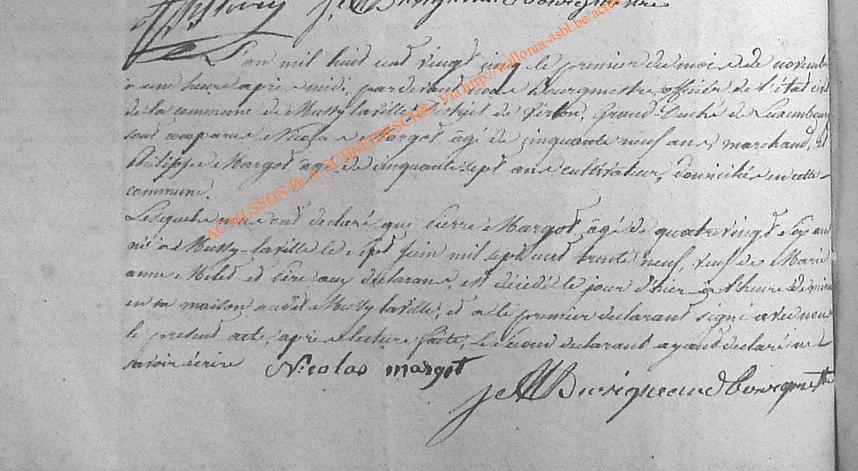 L'an mil huit cent vingt cinq le premier du mois de novembre
à une heure après midi, pardevant nous bourgmestre officier de l'état civil
de la commune de Mussy-laville district de Virton, Grand-Duché de Luxembourg
sont comparus Nicolas Margot âgé de cinquante neuf ans marchand, et
Philippe Margot âgé de cinquante sept ans cultivateur, domiciliés en cette
commune.
Lesquels nous ont declaré que Pierre Margot, âgé de quatre vingt six ans
né à Mussy-laville le sept Juin mil sept cent trente neuf, veuf de Marie
anne et père aux declarans, est décédé le jour d'hier à heure de
en sa maison audit Mussy laville, et a le premier declarant signé avec nous
le present acte, après lecture faite, le second declarant ayant declaré ne
savoir écrire Nicolas margot
bourgmestre
AC MUSSON Ph. S. via http://wallonia-asbl.be/actes